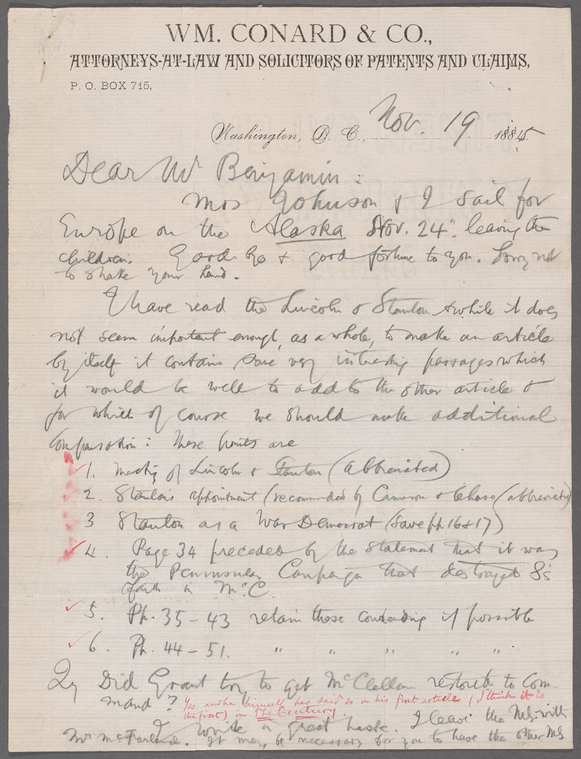 WM. CONARD & CO.,
ATTORNEYS-AT-LAW AND SOLICITORS OF PATENTS AND CLAIMS,
P. O. BOX 715,
Washington, D. C., Nov. 19 1885
Dear Mr Benjamin:
Mrs Johnson & I sail for
Europe on the Alaska Nov. 24" leaving the
children. Good-bye & good fortune to you. Sorry not
to shake your hand.
I have read the Lincoln & Stanton & while it does
not seem important enough, as a whole, to make an article
by itself it contains some very interesting passages which
it would be well to add to the other article &
for which of course we should make additional
compensation: These points are
1. Meeting of Lincoln & Stanton (abbreviated)
2. Stanton's appointment (recommended by Cameron & Chase (abbreviated)
3 Stanton as a War Democrat (save pp. 16 & 17)
4. Page 34 preceded by the statement that it was
the Peninsular Campaign that destroyed S's
faith in McC.
5. Pp. 35-43 retain these condensing if possible
6. Pp. 44-51. " " " " "
Qy Did Grant try to get McClellan restored to Com
mand? Yes and he himself has said so in his first article (I think it is
the first) in The Century.
I write in great haste. I leave the MS. with
Mr McFarland. It may be necessary for you to have the other MS